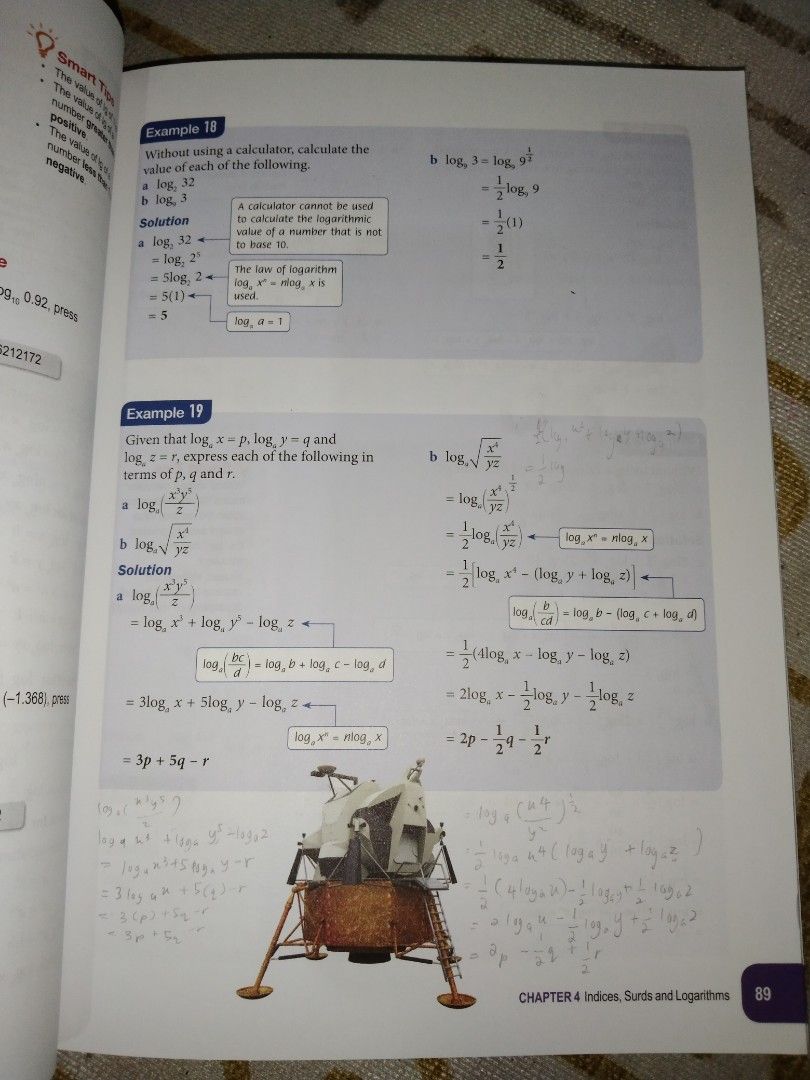 Smart Tips
• The value of lg of
• The value of
number greater
positive.
• The value of lg of
number less than
negative.
e
og₁₀ 0.92, press
5212172
(–1.368), press
Example 18
Without using a calculator, calculate the
value of each of the following.
a log₂ 32
b log₉ 3
Solution
a log₂ 32
= log₂ 2⁵
= 5log₂ 2
= 5(1)
= 5
A calculator cannot be used
to calculate the logarithmic
value of a number that is not
to base 10.
The law of logarithm
logₐ xⁿ = nlogₐ x is
used.
logₐ a = 1
b log₉ 3 = log₉ 9^(1/2)
= 1/2 log₉ 9
= 1/2 (1)
= 1/2
Example 19
Given that logₐ x = p, logₐ y = q and
logₐ z = r, express each of the following in
terms of p, q and r.
a logₐ(x³y⁵/z)
b logₐ√(x⁴/yz)
Solution
a logₐ(x³y⁵/z)
= logₐ x³ + logₐ y⁵ – logₐ z
logₐ(bc/d) = logₐ b + logₐ c – logₐ d
= 3logₐ x + 5logₐ y – logₐ z
logₐ xⁿ = nlogₐ x
= 3p + 5q – r
b logₐ√(x⁴/yz)
= logₐ(x⁴/yz)^(1/2)
= 1/2 logₐ(x⁴/yz)
logₐ xⁿ = nlogₐ x
= 1/2 [logₐ x⁴ – (logₐ y + logₐ z)]
logₐ(b/cd) = logₐ b – (logₐ c + logₐ d)
= 1/2 (4logₐ x – logₐ y – logₐ z)
= 2logₐ x – 1/2 logₐ y – 1/2 logₐ z
= 2p – 1/2 q – 1/2 r
= 1/2 log
logₐ(x³y⁵/z)
= logₐ x³ + 5logₐ y – r
= 3logₐ x + 5(q) – r
= 3(p) + 5q – r
= 3p + 5q – r
= 1/2 logₐ x⁴ (logₐ y + logₐ z)
= 1/2 (4logₐ x) – 1/2 logₐ y + 1/2 logₐ z
= 2logₐ x – 1/2 logₐ y + 1/2 logₐ z
= 2p – 1/2 q + 1/2 r
CHAPTER 4 Indices, Surds and Logarithms
89